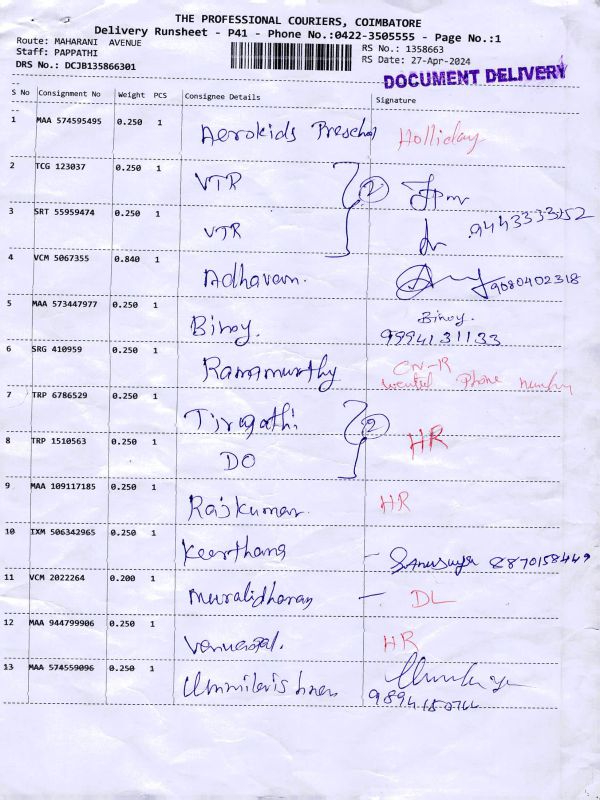 THE PROFESSIONAL COURIERS, COIMBATORE
Delivery Runsheet - P41 - Phone No.:0422-3505555 - Page No.:1
Route: MAHARANI AVENUE RS No.: 1358663
Staff: PAPPATHI RS Date: 27-Apr-2024
DRS No.: DCJB135866301
DOCUMENT DELIVERY
S No Consignment No Weight PCS Consignee Details Signature
1 MAA 574595495 0.250 1 Aerokids Preschol Holliday
2 TCG 123037 0.250 1 VTR 2
3 SRT 55959474 0.250 1 VTR 9443333252
4 VCM 5067355 0.840 1 Adhavan. 9080402318
5 MAA 573447977 0.250 1 Binoy. Binoy.
9994131133
6 SRG 410959 0.250 1 Ramamurthy CN-R
Phone number
7 TRP 6786529 0.250 1 Tirupathi 2
8 TRP 1510563 0.250 1 DO HR
9 MAA 109117185 0.250 1 Rajkumar. HR
10 IXM 506342965 0.250 1 Keerthana - S.Anusuya 8870158449
11 VCM 2022264 0.200 1 Muralidharan - DL
12 MAA 944799906 0.250 1 Venugopal. HR
13 MAA 574559096 0.250 1 Unnikrishnan